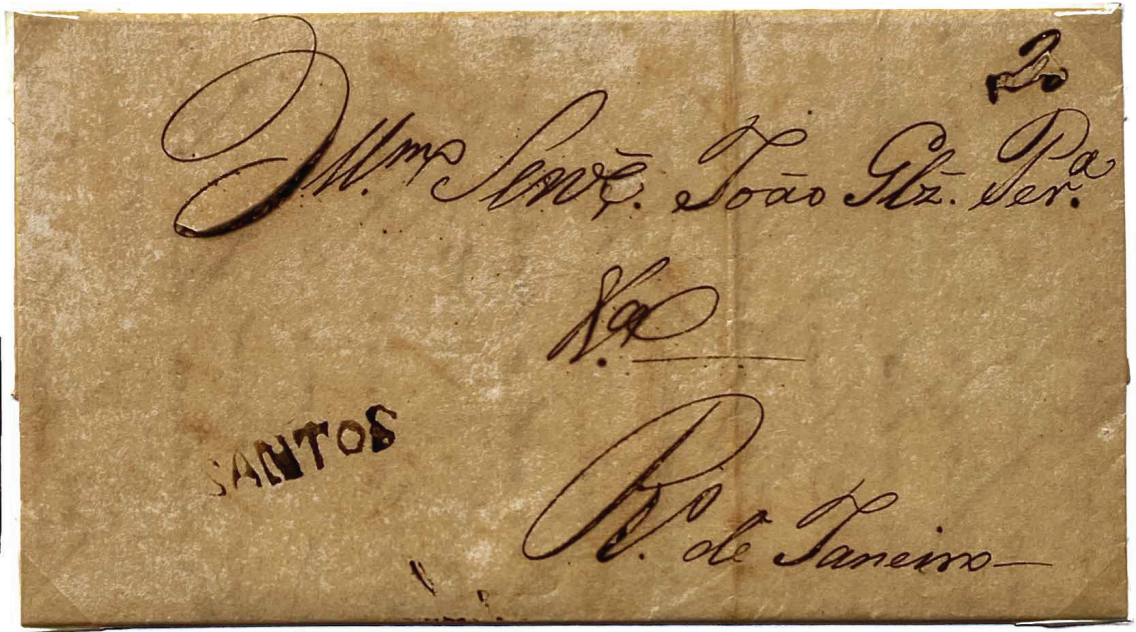 20
Ill.mo Senr. João Glz. Per.a
S.a
SANTOS
R.o de Janeiro